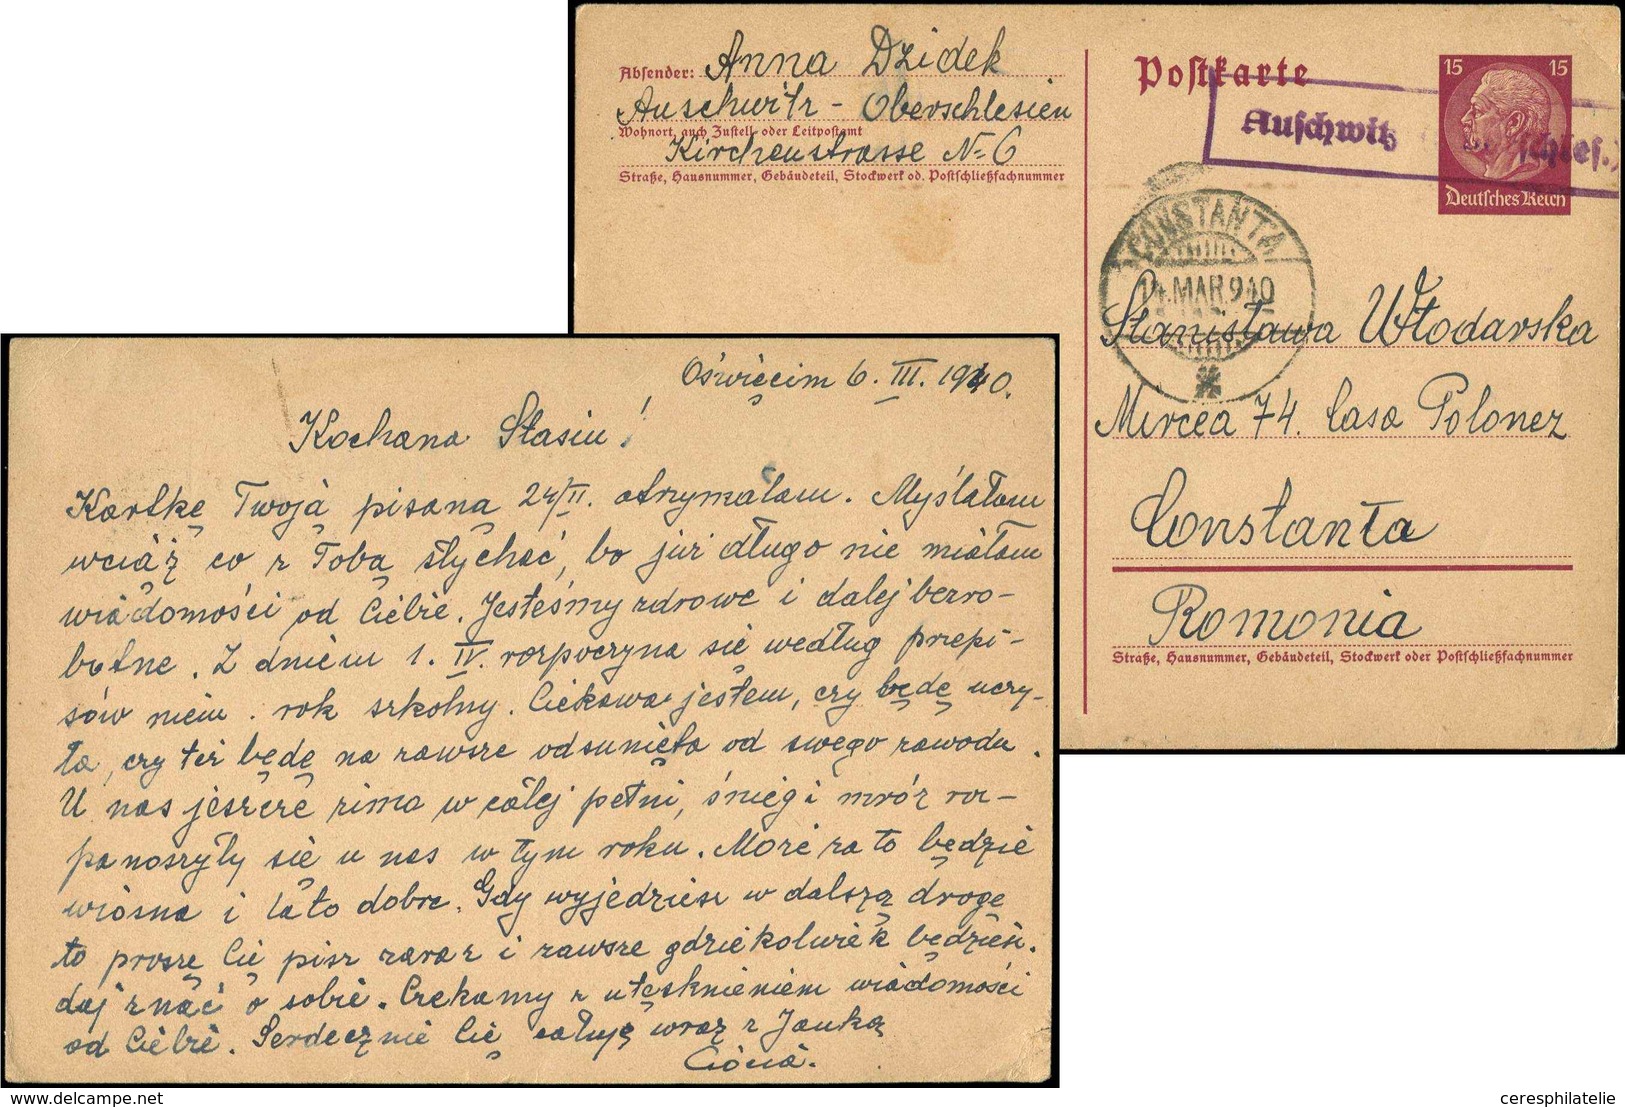 Absender: Anna Dzidek
Auschwitz - Oberschlesien
Wohnort, auch Zustell- oder Leitpostamt
Kirchenstrasse № 6
Straße, Hausnummer, Gebäudeteil, Stockwerk od. Postschließfachnummer
Postkarte
15 15
Deutsches Reich
Auschwitz
CONSTANTA
14.MAR.940
Stanisława Włodarska
Mircea 74. Casa Polonez
Constanta
Romonia
Straße, Hausnummer, Gebäudeteil, Stockwerk oder Postschließfachnummer
Oświęcim 6. III. 1940.
Kochana Stasiu!
Kartkę Twoją pisaną 24/II. otrzymałam. Myślałam
wciąż co z Tobą słychać, bo już długo nie miałam
wiadomości od Ciebie. Jesteśmy zdrowe i dalej bezro-
botne. Z dniem 1. IV. rozpoczyna się według przepi-
sów niem. rok szkolny. Ciekawa jestem, czy będę uczy-
ła, czy też będę na zawsze odsunięta od swego zawodu.
U nas jeszcze zima w całej pełni, śnieg i mróz roz-
panoszyły się u nas w tym roku. Może za to będzie
wiosna i lato dobre. Gdy wyjedziesz w dalszą drogę
to proszę Cię pisz zaraz i zawsze gdziekolwiek będzieś.
daj znać o sobie. Czekamy z utęsknieniem wiadomości
od Ciebie. Serdecznie Cię całuję wraz z Janką
Ciocia.
ceresphilatelie.com
ceresphilatelie